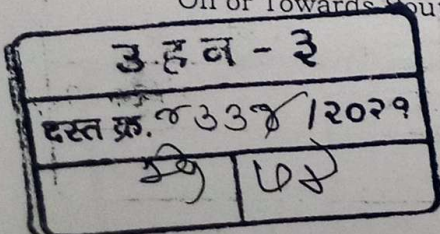 On or Towards Sou
उ.ह.न - ३
दस्त क्र. ४३३४/२०२१